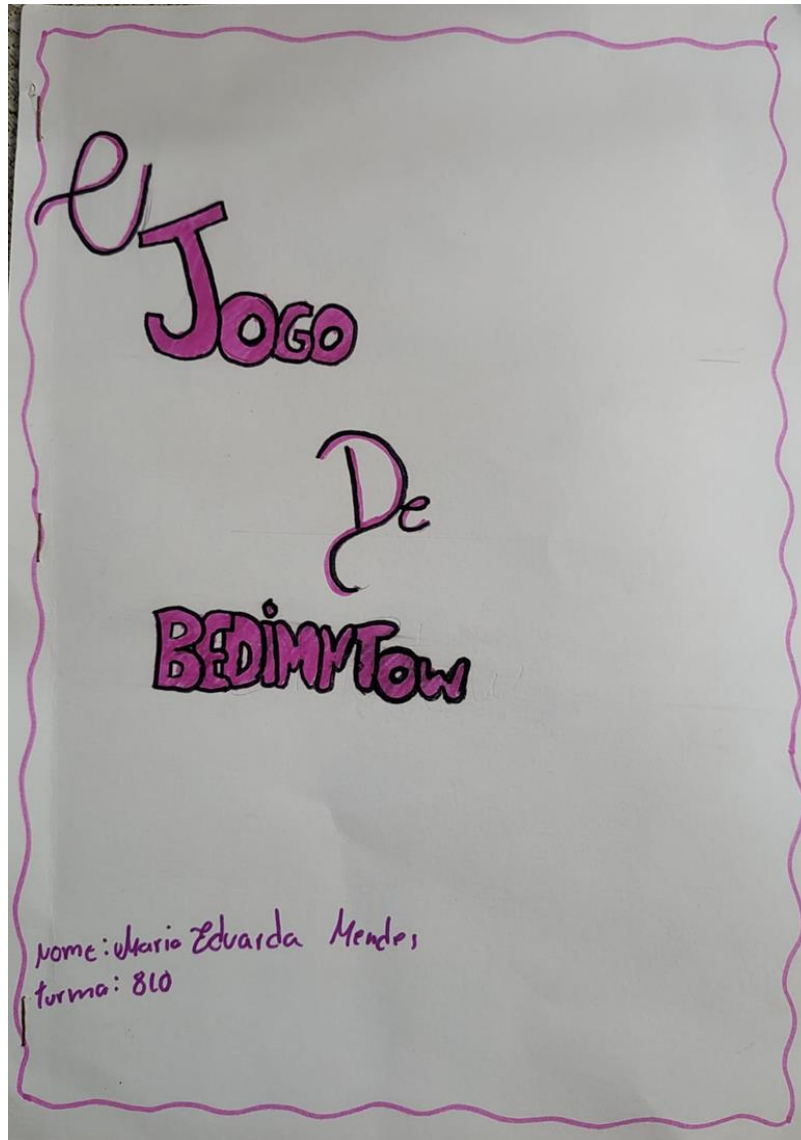 O
JOGO
De
BEDIMNTOW
Nome: Maria Eduarda Mendes
turma: 810